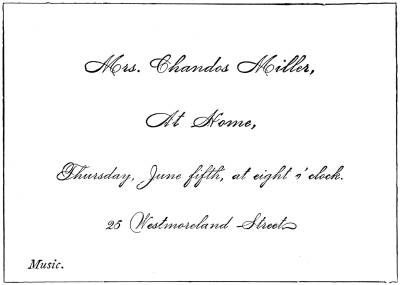 Mrs. Chandos Miller,
At Home,
Thursday, June fifth, at eight o'clock.
25 Westmoreland Street
Music.